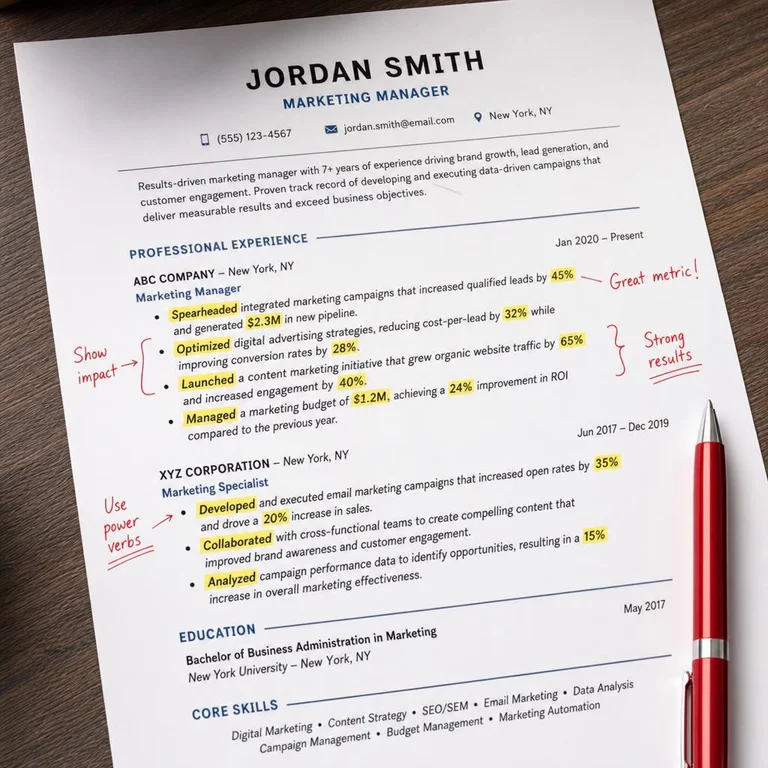 JORDAN SMITH
MARKETING MANAGER
(555) 123-4567 jordan.smith@email.com New York, NY
Results-driven marketing manager with 7+ years of experience driving brand growth, lead generation, and
customer engagement. Proven track record of developing and executing data-driven campaigns that
deliver measurable results and exceed business objectives.
PROFESSIONAL EXPERIENCE
Jan 2020 – Present
ABC COMPANY – New York, NY
Marketing Manager
• Spearheaded integrated marketing campaigns that increased qualified leads by 45%
and generated $2.3M in new pipeline.
Great metric!
• Optimized digital advertising strategies, reducing cost-per-lead by 32% while
improving conversion rates by 28%.
Show
impact
• Launched a content marketing initiative that grew organic website traffic by 65%
and increased engagement by 40%.
Strong
results
• Managed a marketing budget of $1.2M, achieving a 24% improvement in ROI
compared to the previous year.
Jun 2017 – Dec 2019
XYZ CORPORATION – New York, NY
Marketing Specialist
• Developed and executed email marketing campaigns that increased open rates by 35%
and drove a 20% increase in sales.
Use
power
verbs
• Collaborated with cross-functional teams to create compelling content that
improved brand awareness and customer engagement.
• Analyzed campaign performance data to identify opportunities, resulting in a 15%
increase in overall marketing effectiveness.
EDUCATION
May 2017
Bachelor of Business Administration in Marketing
New York University – New York, NY
CORE SKILLS
Digital Marketing • Content Strategy • SEO/SEM • Email Marketing • Data Analysis
Campaign Management • Budget Management • Marketing Automation